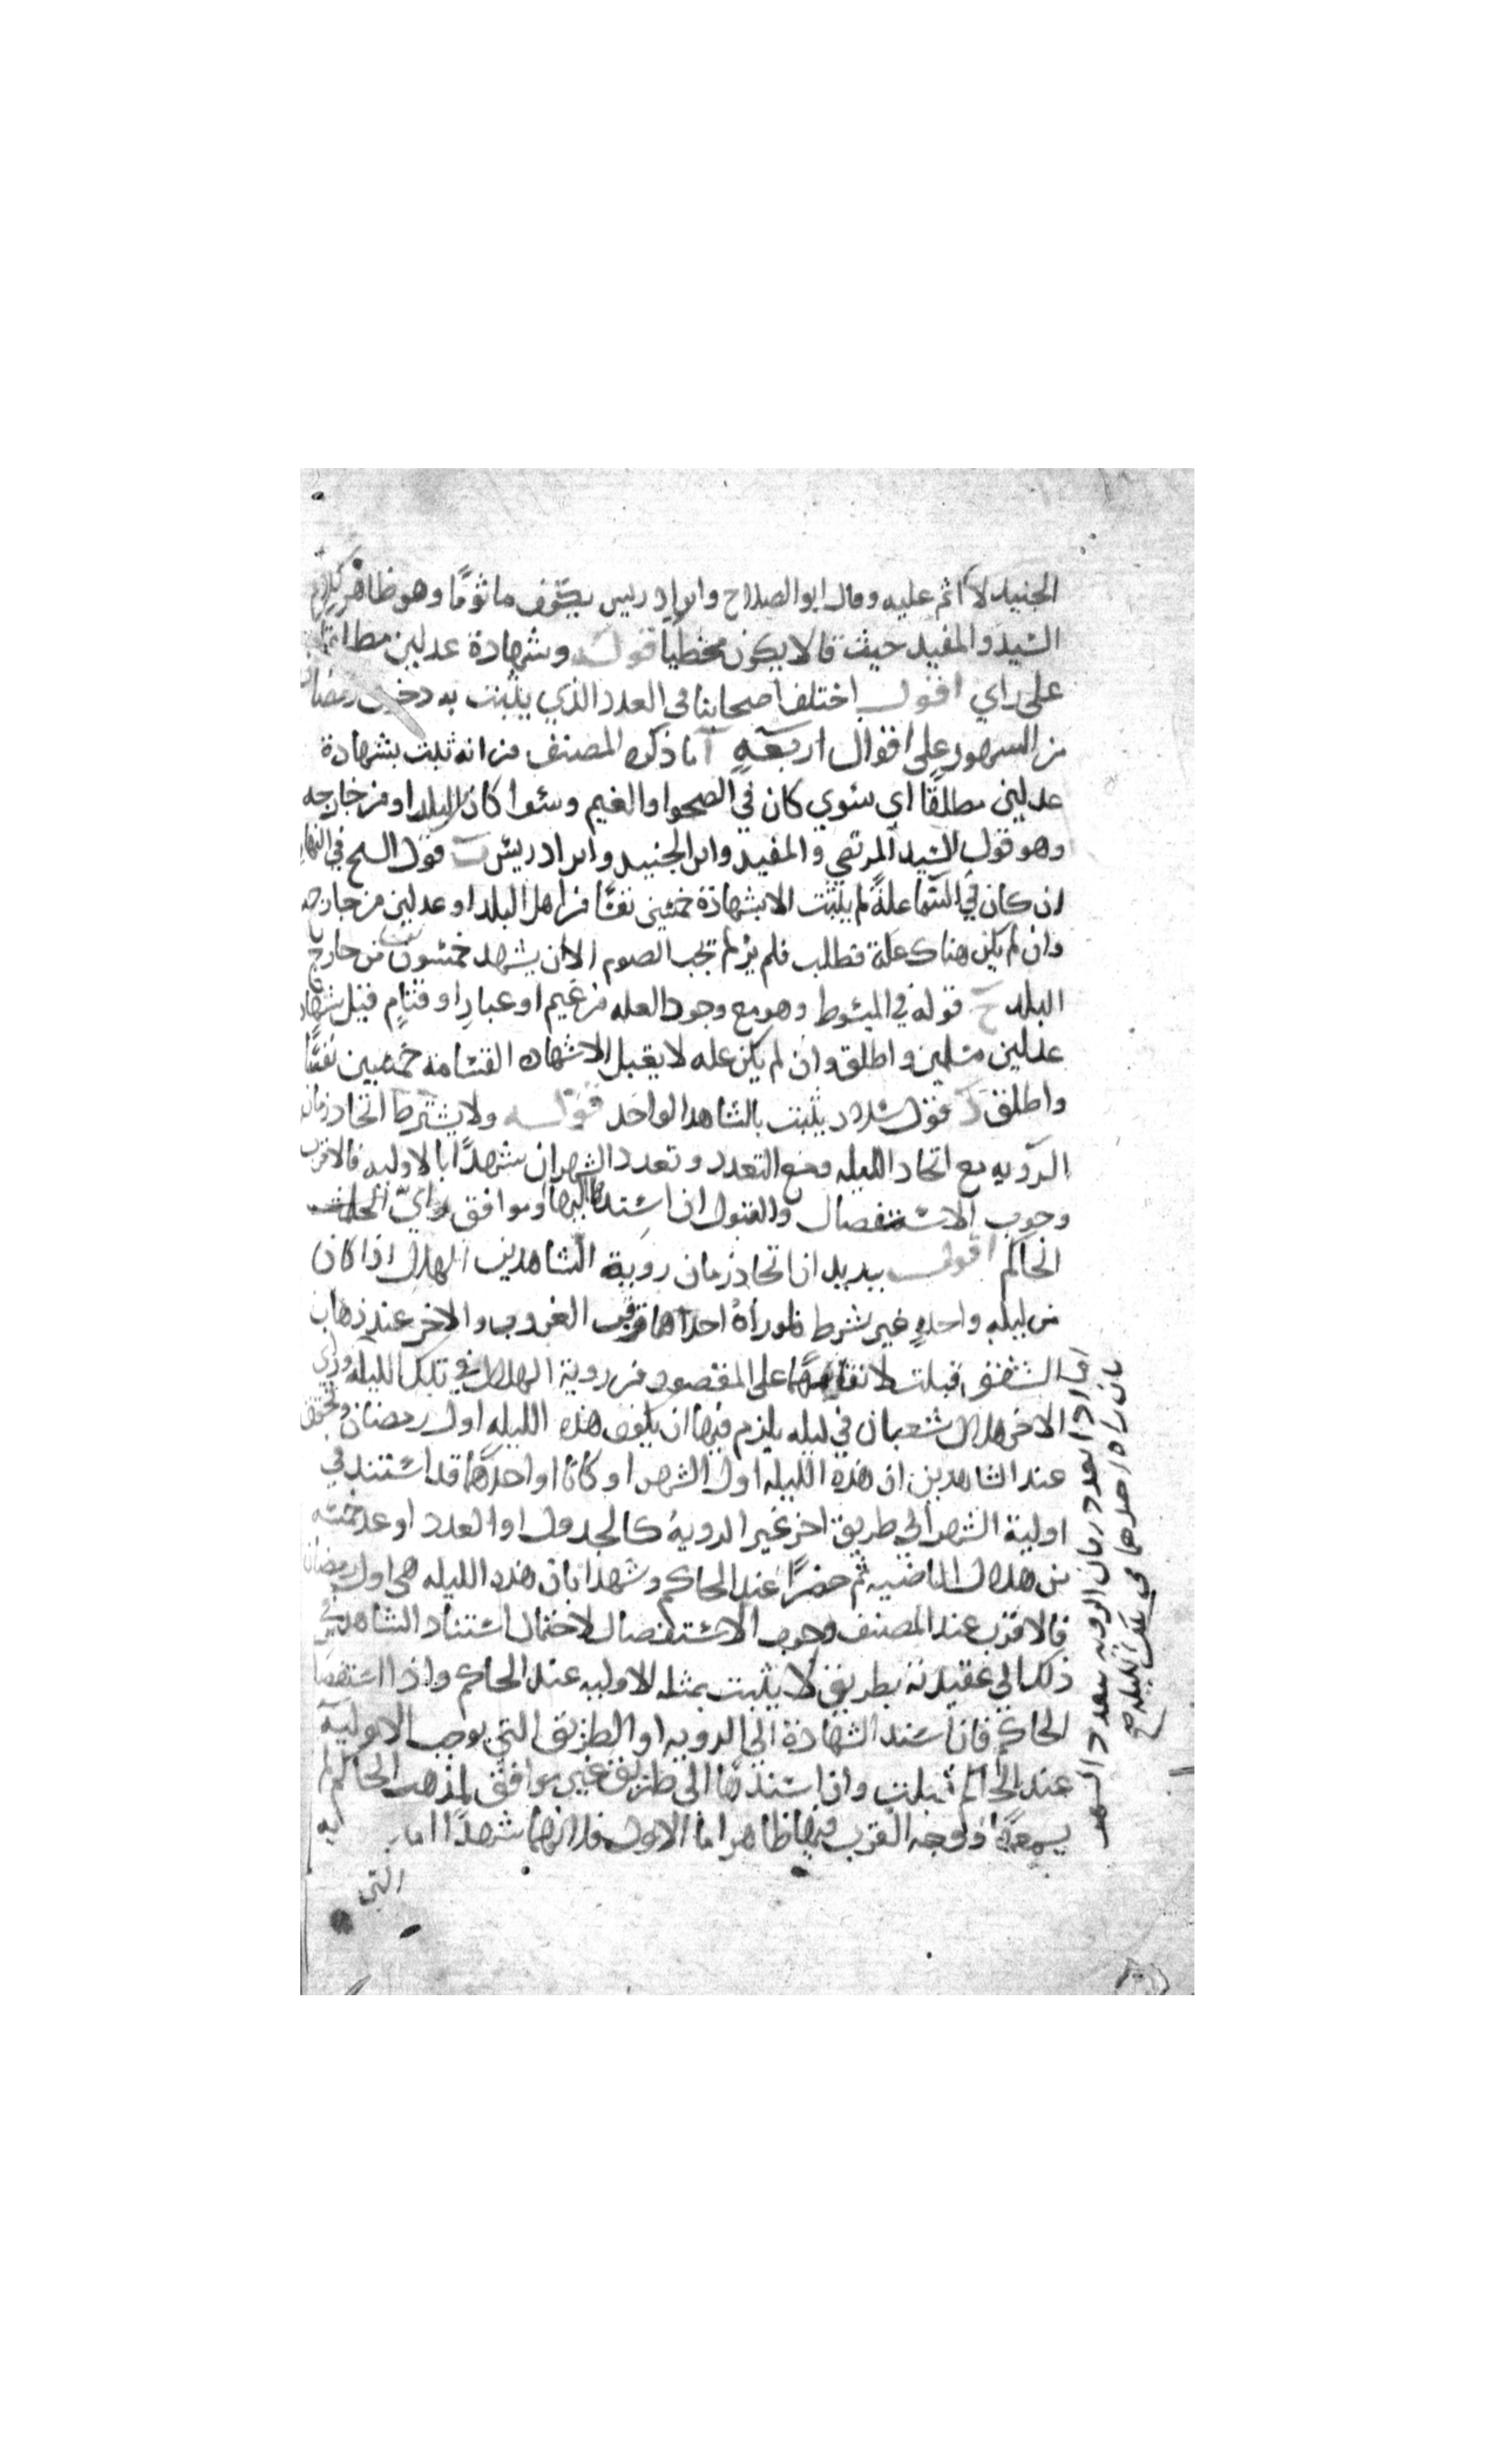 الجنيد لا اثم عليه وقال ابو الصلاح وابن ادريس يكون ماثومًا وهو ظاهر كلام
السيد والمفيد حيث قالا يكون مخطيا قوله وشهادة عدلين مطلقا
على راي اقول اختلف اصحابنا في العدد الذي يثبت به دخول رمضان
من الشهور على اقوال اربعةٍ آ ما ذكره المصنف من انه ثبت بشهادة
عدلين مطلقًا اي سوي كان في الصحو او الغيم وسوا كانا من البلد او من خارجه
وهو قول السيد المرتضي والمفيد وابن الجنيد وابن ادريس ب قول الشيخ في النهاية
ان كان في السما علةً لم يثبت الا بشهادة خمسين نفسًا من اهل البلد او عدلين من خارجه
وان لم يكن هناك علة فطلب فلم ير لم تجب الصوم الا ان يشهد خمسون نفسا من خارج
البلد ج قوله في المبسوط وهو مع وجود العله من غيم او غبارٍ او قتامٍ قبل شهادة
عدلين مسلمين واطلق وان لم يكن عله لا يقبل الا شهاده القسامة خمسين نفسًا
واطلق د قول سلار يثبت بالشاهد الواحد قوله ولا يشترط اتحاد زمان
الرويه مع اتحاد الليله ومع التعدد وتعدد الشهر ان شهدا بالاوليه فالاقرب
وجوب الاستفصال والقبول ان اسنداها اليها او موافق راي
الحاكم اقول يريد ان اتحاد زمان روية الشاهدين الهلال اذا كان
من ليلهٍ واحدهٍ غير شرط فلو راهُ احدهما قرب الغروب والاخر عند ذهاب
الشفق قبلت لاتفاقهما على المقصود من روية الهلال في تلك الليله وراي
الاخر هلال شعبان في ليله يلزم فيها ان يكون هذه الليله اول رمضان وتحقق
عند الشاهدين ان هذه الليله اول الشهر او كانا او احدهما قد استند في
اولية الشهر الى طريق اخر غير الروية كالجدول او العدد او عد خمسه
من هلال الماضيه ثم حضرًا عند الحاكم وشهدا بان هذه الليله هي اول رمضان
فالاقرب عند المصنف وجوب الاستفصال لاحتمال استناد الشاهد في
ذلك الي عقيدته بطريق لا يثبت بمثله الاوليه عند الحاكم واذا استفصل
الحاكم فان اسند الشهادة الي الرويه او الطريق التي يوجب الاولية
عند الحاكم قبلت وان اسندها الى طريق غير موافق لمذهب الحاكم لم
يسمعها ووجه القرب فيها ظاهر اما الاول فلانهما شهدا اما
التي
اما اذا تعدد زمان الرويه بتعدد الشهر
بان راه احدهما في تلك الليله صح